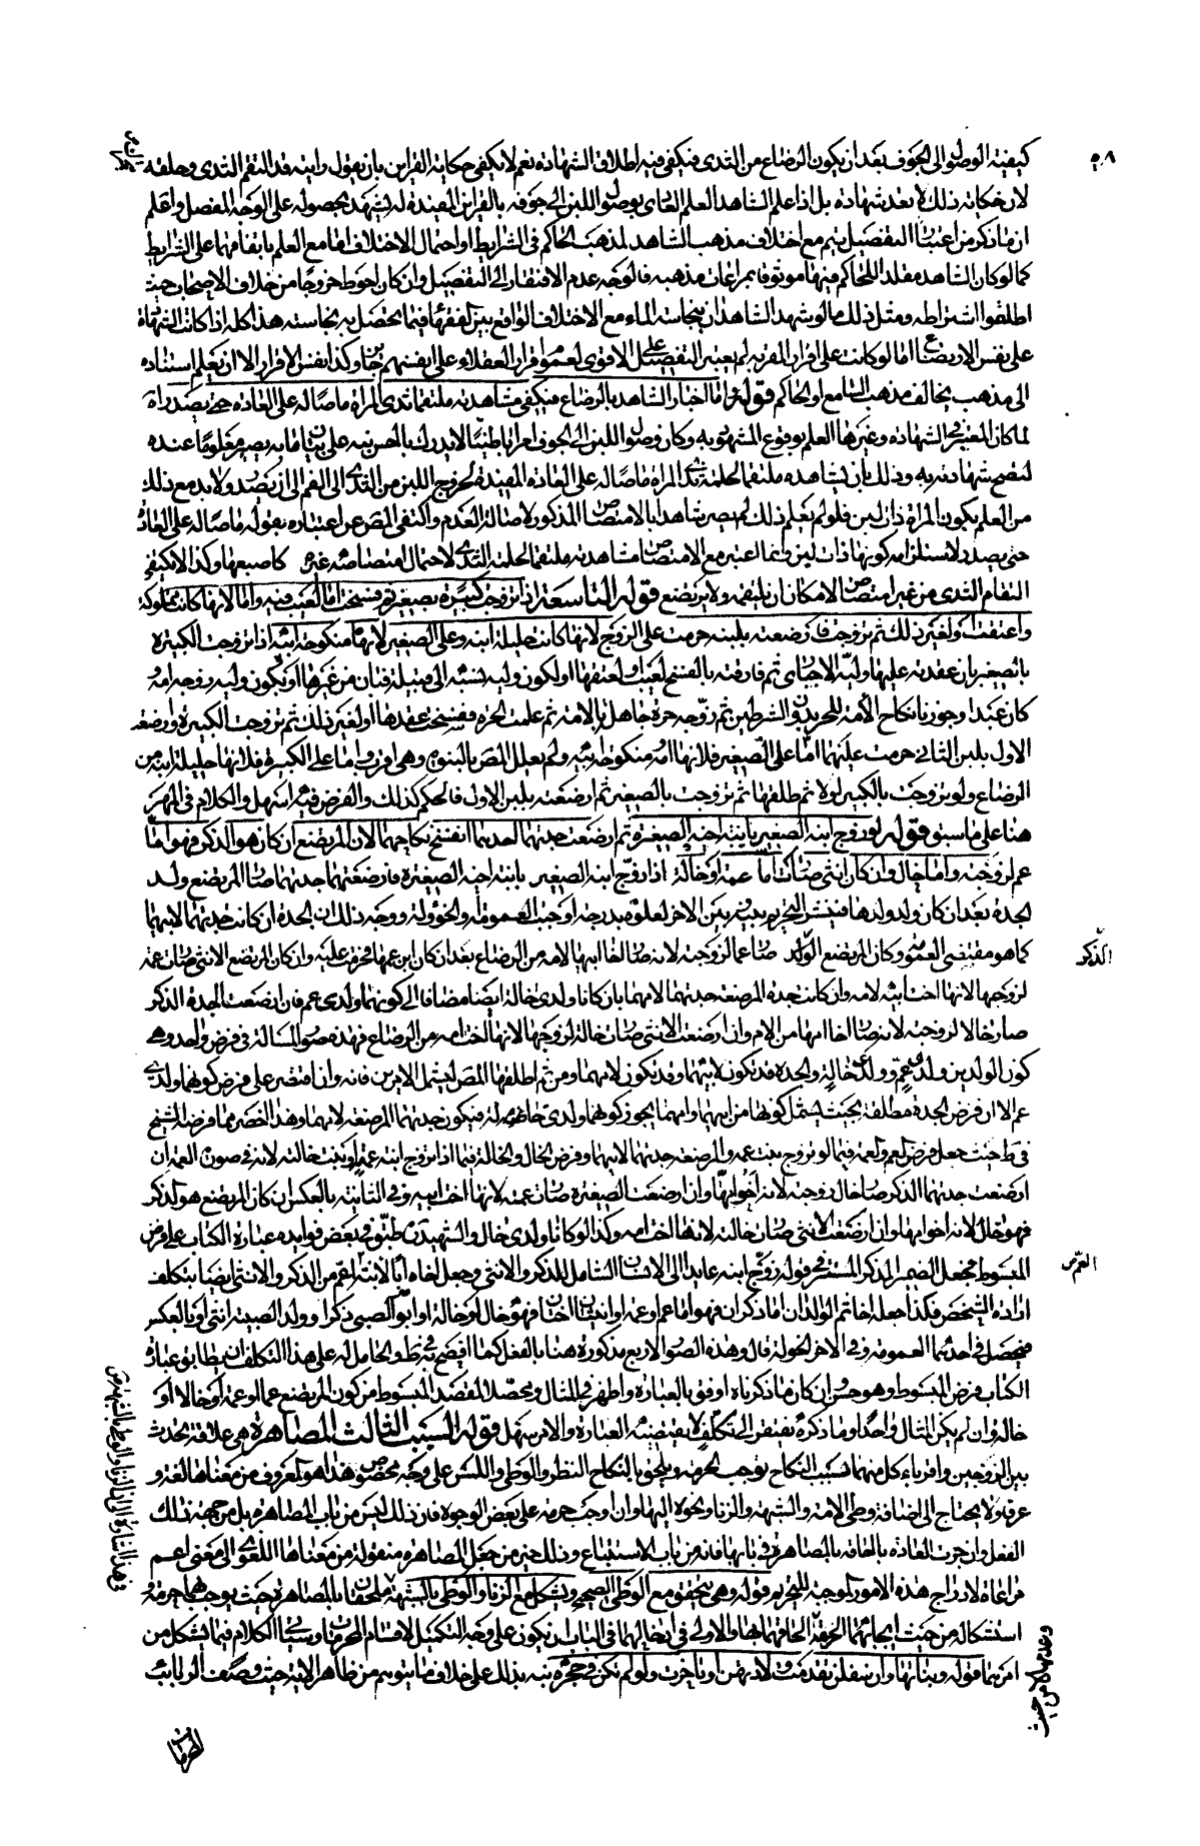 ٥٠٨
كيفيته الوصول الى الجوف بعد ان يكون الرضاع من الثدى فيكفى فيه اطلاق الشهادة نعم لا يكفى حكاية القراين بان يقول رايته قد التقم الثدى وحلقه
لان حكاية ذلك لا تعد شهادة بل اذا علم الشاهد العلم العادى بوصول اللبن الى جوفه بالقراين المفيدة له ليشهد بحصوله على الوجه المفصل واعلم
ان ما ذكر من اعتبار التفصيل يتم مع اختلاف مذهب الشاهد لمذهب الحاكم فى الشرايط او احتمال الاختلاف اما مع العلم باتفاقهما على الشرايط
كما لو كان الشاهد مقلدا للحاكم فيها موثوقا بمراعات مذهبه فالوجه عدم الافتقار الى التفصيل وان كان احوط خروجا من خلاف الاصحاب حيث
اطلقوا اشتراطه ومثل ذلك ما لو شهد الشاهدان بنجاسة الماء مع الاختلاف الواقع بين الفقهاء فيما يحصل به نجاسته هذا كله اذا كانت الشهادة
على نفس الارتضاع اما لو كانت على اقرار المقر به لم يعتبر التفصيل على الاقوى لعموم اقرار العقلاء على انفسهم جايز وكذا نفس الاقرار الا ان يعلم استناده
الى مذهب يخالف مذهب السامع او الحاكم قوله واما اخبار الشاهد بالرضاع فيكفى مشاهدته ملتقما ثدى المراة ماصا له على العادة حتى يصدر اه
لما كان المعتبر فى الشهادة وغيرها العلم بوقوع المشهود به وكان وصول اللبن الى الجوف امرا باطنيا لا يدرك بالحس نبه على بيان ما به يصير معلوما عنده
لتصح شهادته به وذلك بان يشاهده ملتقما الحلمة ثدى المراة ماصا له على العادة المفيدة لخروج اللبن من الثدى الى الفم الى ان يصدر ولا بد مع ذلك
من العلم بكون المراة ذات لبن فلو لم يعلم ذلك لم يصر شاهدا بالامتصاص المذكور لاصالة العدم واكتفى المص عن اعتباره بقوله ماصا له على العادة
حتى يصدر لاستلزامه كونها ذات لبن وانما اعتبر مع الامتصاص مشاهدته ملتقما الحلمة الثدى لاحتمال امتصاصه غيره كاصبعها وكذا لا يكفى
التقام الثدى من غير امتصاص لامكان ان يلتقمه ولا يرتضع قوله التاسعة اذا تزوجت كبيرة بصغير ثم فسخت اما لعيب فيه واما لانها كانت مملوكة
واعتقت او لغير ذلك ثم تزوجت فارضعته بلبنه حرمت على الزوج لانها كانت حليلة ابنه وعلى الصغير لانها منكوحة ابيه اذا تزوجت الكبيرة
بالصغير بان عقد له عليها وليه الاجبارى ثم فارقته بالفسخ لعيب او لعتقها او لكون وليه نسبه الى قبيلة فبان من غيرها او يكون وليه زوجه امة
كان عبدا وجوزنا نكاح الامة للحر بدون الشرطين ثم زوجه حرة جاهلة بالامة ثم علمت الحرة ففسخت عقدها او لغير ذلك ثم تزوجت الكبيرة وارضعته
الاول بلبن الثانى حرمت عليهما اما على الصغير فلانها امه ومنكوحة ابيه ولم يعلل المص بالبنوة وهى اقرب واما على الكبير فلانها حليلة ابنه من
الرضاع ولو تزوجت بالكبير اولا ثم طلقها ثم تزوجت بالصغير ثم ارضعته بلبن الاول فالحكم كذلك والفرض فيه اسهل والكلام فى المهر
هنا على ما سبق قوله لو زوج ابنه الصغير بابنة اخيه الصغيرة ثم ارضعت جدتهما احدهما انفسخ نكاحهما لان المرتضع ان كان هو الذكر فهو اما
عم لزوجته واما خال وان كان انثى صارت اما عمة او خالة اذا زوج ابنه الصغير بابنة اخيه الصغيرة فارضعتهما جدتهما صار المرتضع ولد
الجدة بعد ان كان ولد ولدها فينشر التحريم بينه وبين الاخر لعلوه بدرجة اوجبت العمومة او الخؤولة ووجه ذلك ان الجدة ان كانت جدتهما لابيهما
كما هو مقتضى العمومة وكان المرتضع الولد صار عما لزوجته لانه صار اخا ابيها لامه من الرضاع بعد ان كان ابن عمها فحرمت عليه وان كان المرتضع الانثى صارت عمة
الذكر
لزوجها لانها اخت ابيه لامه وان كانت جدة المرضعة جدتهما لامهما بان كانا ولدى خالة ايضا مضافا الى كونهما ولدى عم فان ارضعت الجدة الذكر
صار خالا لزوجته لانه صار اخا امها من الام وان ارضعت الانثى صارت خالة لزوجها لانها اخت امه من الرضاع فهذه صور المسالة فى فرض واحد وهى
كون الولدين ولدى عم وولدى خالة والجدة قد تكون لابيهما وقد تكون لامهما ومن ثم اطلقها المص ليشمل الامرين فانه وان اقتصر على فرض كونهما ولدى
عم الا ان فرض الجدة مطلقة بحيث يشمل كونها من ابيهما وامهما يجوز كونهما ولدى خالة فيكون جدتهما المرضعة لامهما وهذا اخصر مما فرضه الشيخ
فى ط حيث جعل فرض العم والعمة فيما لو تزوج بنت عمه والمرضعة جدتهما لابيهما وفرض الخال والخالة فيما اذا تزوج ابنة عمته او بنت خالته لانه فى صورة العمة ان
ارضعت جدتهما الذكر صار خال زوجته لانه اخو امها وان ارضعت الصغيرة صارت عمته لانها اخت ابيه وفى الثانية بالعكس ان كان المرتضع هو الذكر
فهو خال لانه اخو امها وان ارضعت الانثى صارت خالته لانها اخت امه وكذا لو كانا ولدى خال والشهيد ره طبق فى بعض فوايده عبارة الكتاب على فرض
المبسوط فجعل الضمير المذكر المستتر فى قوله زوج ابنه عايدا الى الانسان الشامل للذكر والانثى وجعل اخاه ايضا لابنه اعم من الذكر والانثى ايضا بتكلف
العم ص
ارادة الشخص فكذا جعله اخا ثم الولدان اما ذكران فهو اما عم او عمة او انثيان اختان فهو خال او خالة او ابو الصبى ذكر او ولد الصبية انثى او بالعكس
فيحصل فى احدهما العمومة وفى الاخر الخؤولة قال وهذه الصور الاربع مذكورة هنا بالفعل كما افصح فى ط والحامل له على هذا التكلف ان يطابق عبارة
الكتاب فرض المبسوط وهو حسن وان كان ما ذكرناه اوفق بالعبارة واظهر فى المثال ومحصلا لمقصد المبسوط من كون المرتضع عما او عمة او خالا او
خالة وان لم يكن المثال واحدا وما ذكره يفتقر الى تكلف لا تقتضيه العبارة والامر سهل قوله السبب الثالث المصاهرة هى علاقة تحدث
بين الزوجين واقرباء كل منهما بسبب النكاح توجب الحرمة ويلحق بالنكاح النظر والوطى واللمس على وجه مخصوص هذا هو المعروف من معناها لغة و
عرفا ولا يحتاج الى اضافة وطى الامة والشبهة والزنا ونحوه اليها وان اوجب حرمة على بعض الوجوه فان ذلك ليس من باب المصاهرة بل من جهة ذلك
الفعل وان جرت العادة بالحاقه بالمصاهرة فى بابها فانه من باب الاستتباع وذلك خير من جعل المصاهرة منقولة من معناها اللغوى الى معنى اعم
مراعاة لادراج هذه الامور الموجبة للتحريم قوله وهى تتحقق مع الوطى الصحيح ويشكل مع الزنا والوطى بالشبهة ملحقان بالمصاهرة حيث يوجب حرمة و
استشكاله من حيث ايجابهما الحرمة الحاقهما بها والاولى فى ادخالهما فى الباب ان يكون على وجه التكميل لاقسام المحرمات وسياتى الكلام فيما يشكل من
امرهما قوله وبناتها وان سفلن تقدمت ولادتهن او تاخرت ولو لم تكن فى حجره نبه بذلك على خلاف ما يتوهم من ظاهر الاية حيث وصف الربائب